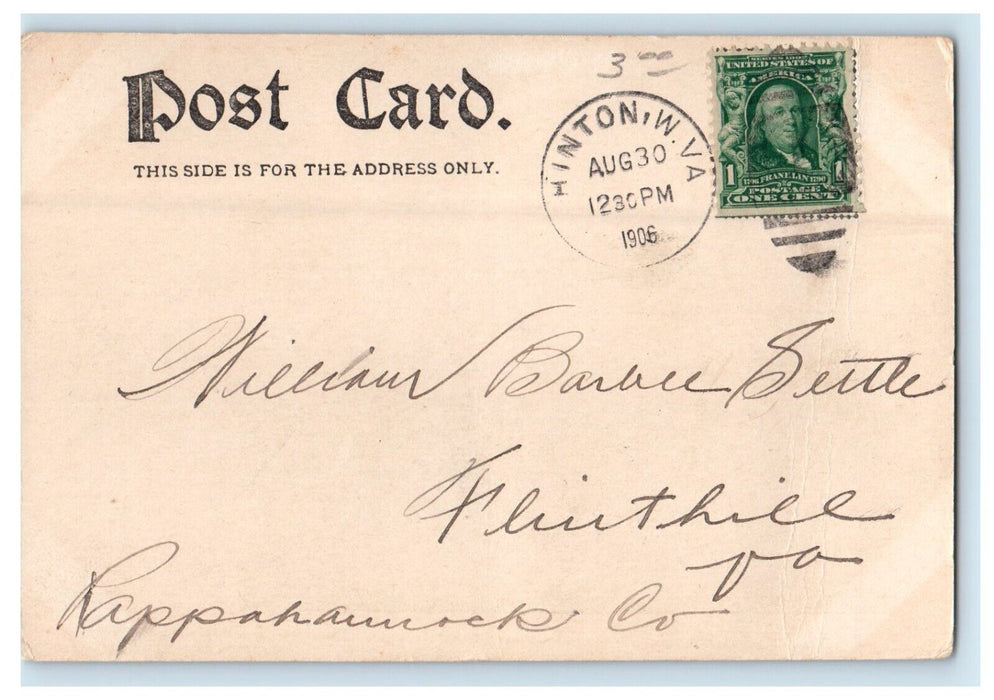 3 00
Post Card.
THIS SIDE IS FOR THE ADDRESS ONLY.
HINTON, W. VA
AUG 30
1230 PM
1906
SERIES 1902
UNITED STATES OF
AMERICA
1 1706 FRANKLIN 1790 1
POSTAGE
ONE CENT
William Barbee Settle
Flinthill
Va
Rappahannock Co